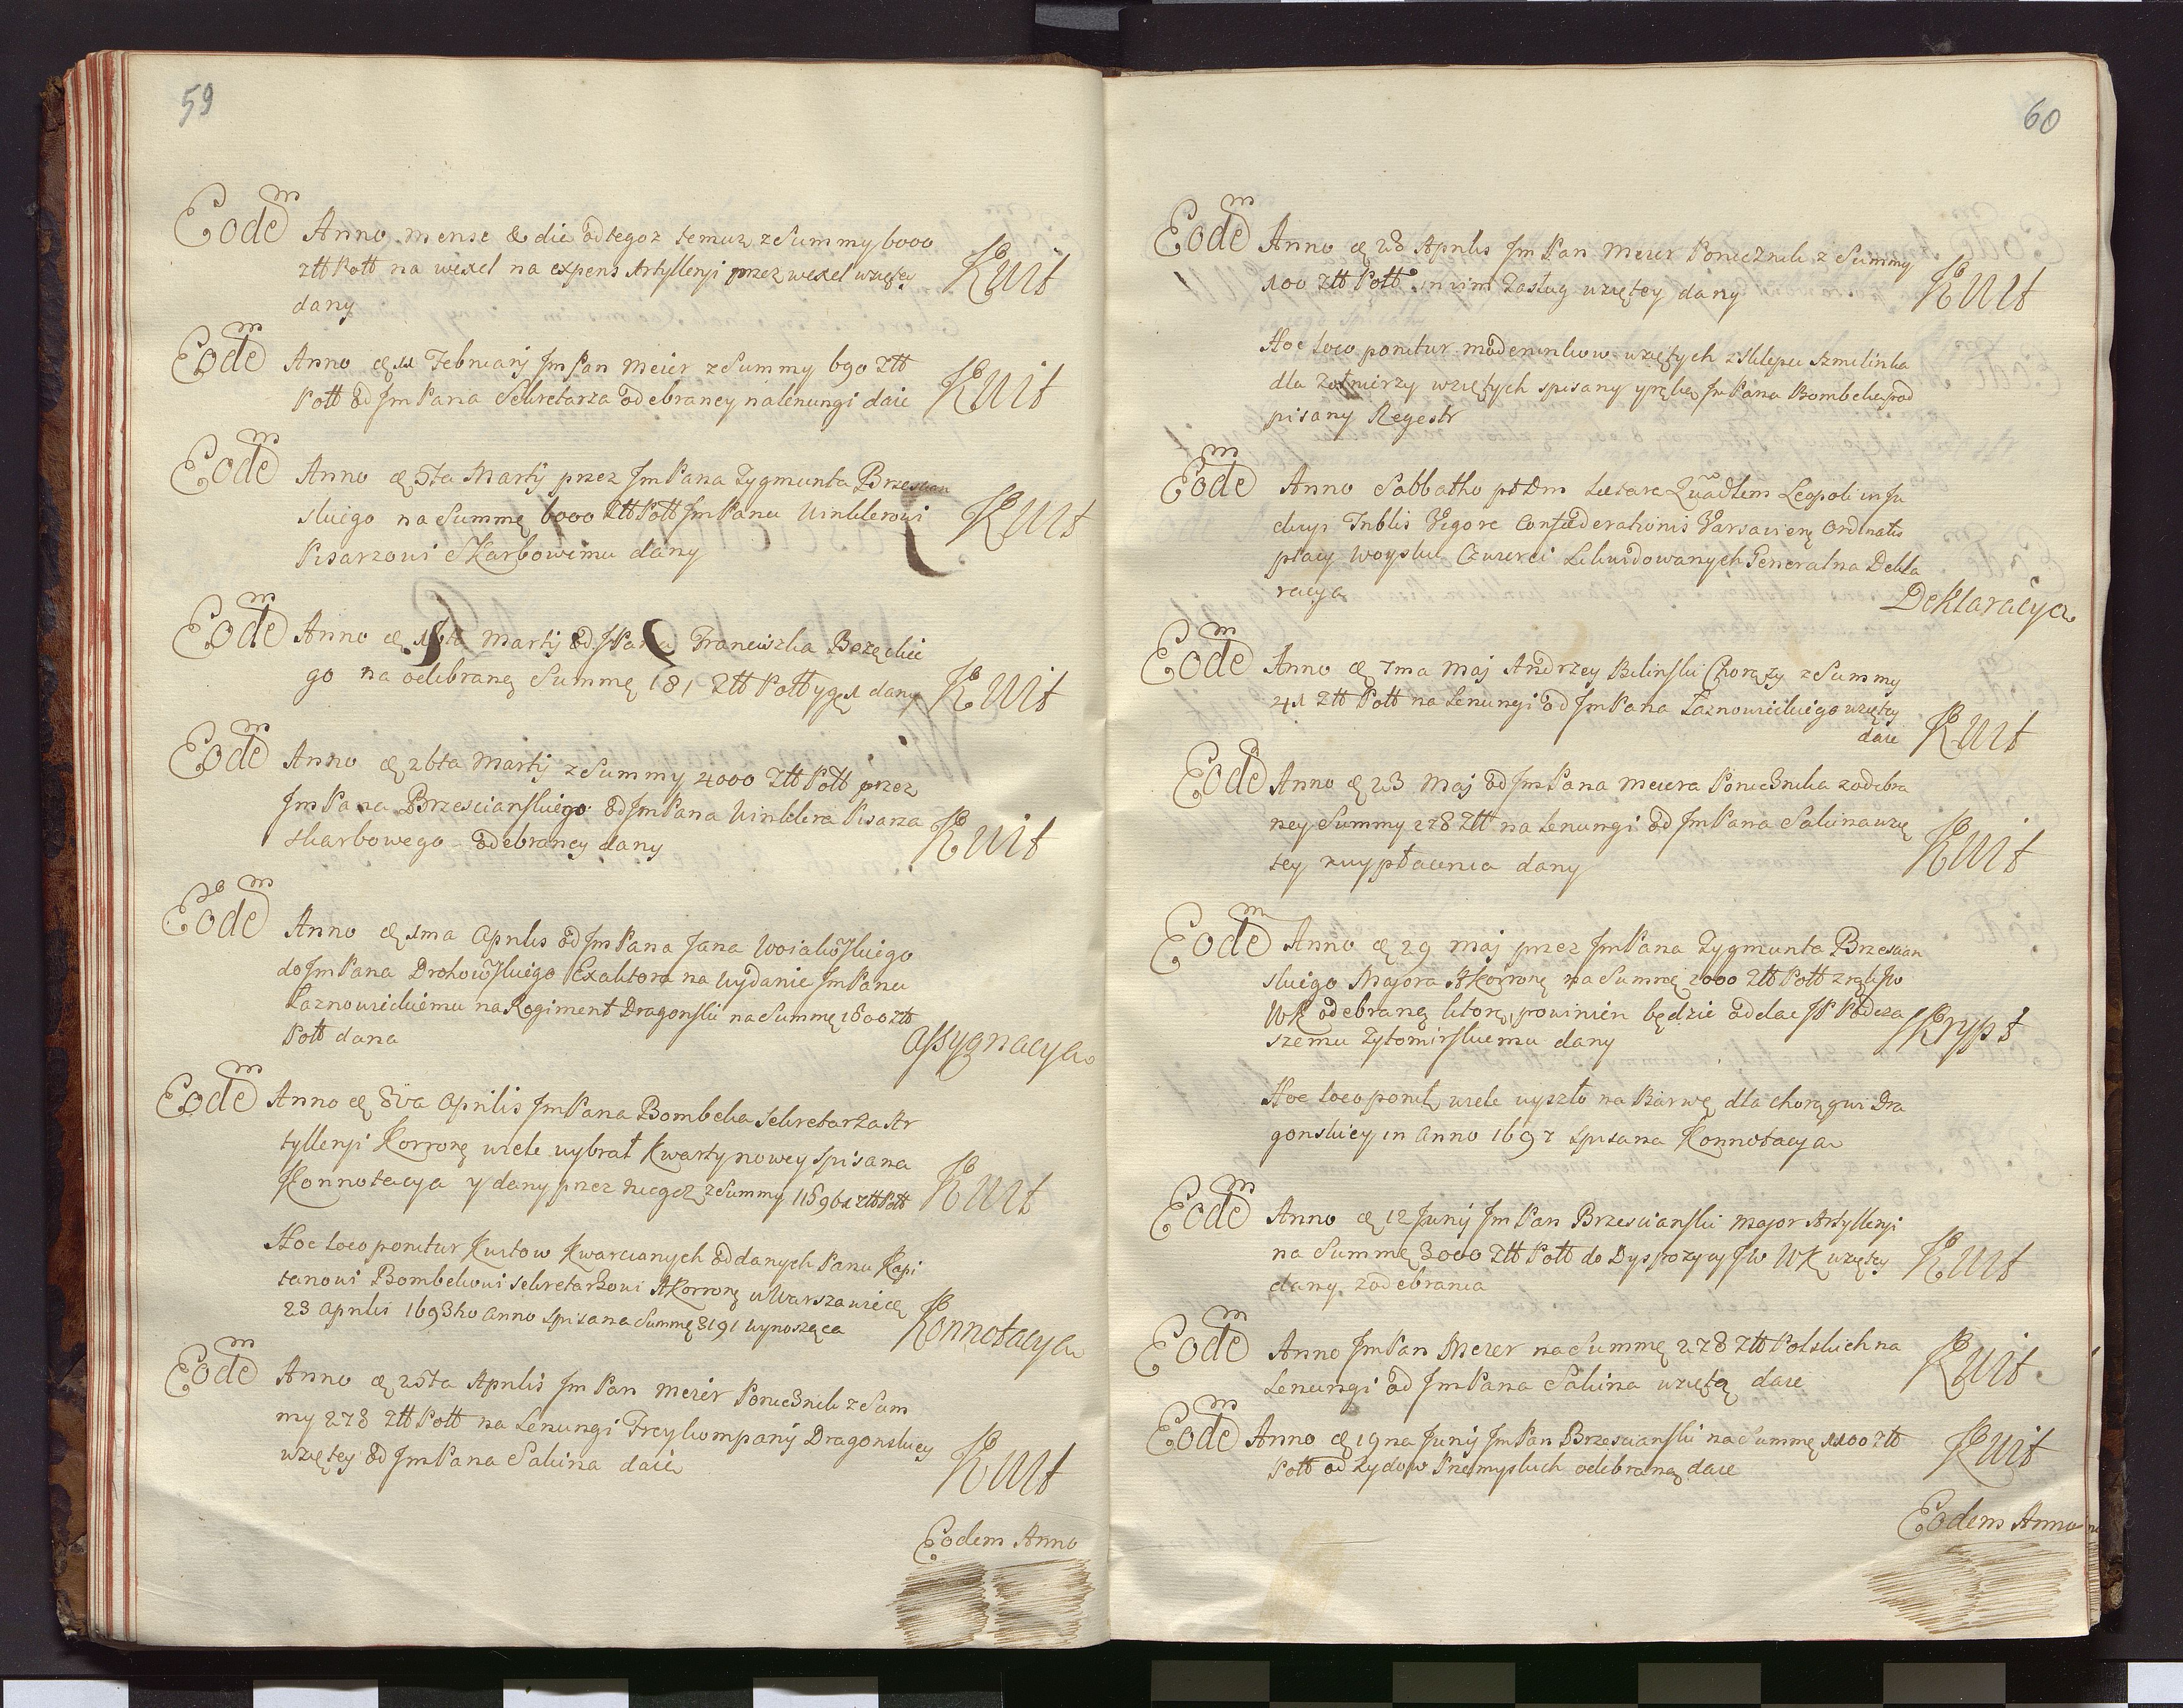 59
Eodem Anno mense & die od tegoz temuz z Summy 6000
Ztt Pott na wexel na expens Artylleryi przez wexel wziętey
dany Kwit
Eodem Anno & 11 Februarij Jm Pan Meier z Summy 690 Ztt
Pott od Jm Pana Sekretarza odebraney na lenungi daie Kwit
Eodem Anno & 5ta Martij przez Jm Pana Zygmunta Brzescian
skiego na Summę 6000 Ztt Pott Jm Panu Winklerowi
Pisarzowi Skarbowemu dany Kwit
Eodem Anno & 16ta Martij od JPana Franciszka
go na odebraną Summę 181 Ztt Pott y gr 1 dany Kwit
Eodem Anno & 26ta Martij z Summy 4000 Ztt Pott przez
Jm Pana Brzescianskiego od Jm Pana Winklera Pisarza
skarbowego odebraney dany Kwit
Eodem Anno & 1ma Aprilis od Jm Pana Jana Woiakowskiego
do Jm Pana Drohowskiego Exaktora na wydanie Jm Panu
Łaznowickiemu na Regiment Dragonski na Summę 1600 Ztt
Pott dana Assygnacya
Eodem Anno & 8va Aprilis Jm Pana Bombeka Sekretarza Ar
tylleryi Korronę wiele wybrał Kwarty nowey spisana
Konnotacya y dany przez niegoz z Summy 116961 Ztt Pott Kwit
Hoc loco ponitur Kwitow Kwarcianych oddanych Panu Kapi
tanowi Bombekowi Sekretarzowi A Korronę w Warszawie &
23 Aprilis 1693tio Anno spisana Summę 3191 wynosząca Konnotacya
Eodem Anno & 25ta Aprilis Jm Pan Meier Porucznik z Sum
my 278 Ztt Pott na Lenungi Freykompanij Dragonskiey
wziętey od Jm Pana Sakina daie Kwit
Eodem Anno
60
Eodem Anno & 28 Aprilis Jm Pan Meier Porucznik z Summy
100 Ztt Pott in vim Zasług wziętey dany Kwit
Hoc loco ponitur moderunkow wziętych z sklepu Szmelinka
dla Zołnierzy wziętych spisany y ręką Jm Pana Bombeka pod
pisany Regestr
Eodem Anno Sabbatho Leopoli in Ju
Vigore Confœderationis Varsavien ordinatis
płacy woysku Generalna Dekla
racya Deklaracya
Eodem Anno & 7ma Maj Andrzey Bilinski Chorąży z Summy
41 Ztt Pott na Lenungi od Jm Pana Łaznowickiego wziętey
daie Kwit
Eodem Anno & 23 Maj od Jm Pana Meiera Porucznika z odebra
ney Summy 278 Ztt na Lenungi od Jm Pana Sakina wzię
tey z wypłacenia dany Kwit
Eodem Anno & 29 Maj przez Jm Pana Zygmunta Brzescian
skiego Majora A Korronę na Summę 2000 Ztt Pott z rąk Jw
WK odebraną ktorą powinien będzie oddac JP Podcza
szemu Zytomirskiemu dany Skrypt
Hoc loco ponit wiele wyszło na Barwę dla chorągwi Dra
gonskiey in Anno 1697 spisana Konnotacya
Eodem Anno & 12 Junij Jm Pan Brzescianski Major Artylleryi
na Summę 3000 Ztt Pott do Dyspozycyi Jw WK wziętey
dany z odebrania Kwit
Eodem Anno Jm Pan Meier na Summę 278 Ztt Polskich na
Lenungi od Jm Pana Sakina wziętą daie Kwit
Eodem Anno & 19na Junij Jm Pan Brzescianski na Summę 1100 Ztt
Pott od Zydow Przemyskich odebraną daie Kwit
Eodem Anno